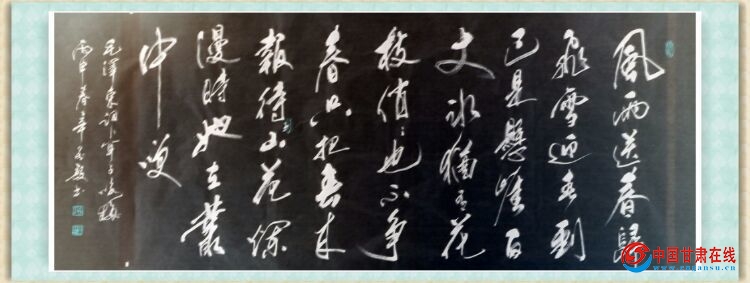 風雨送春歸
飛雪迎春到
已是懸崖百
丈冰猶有花
枝俏々也不争
春只把春来
報待到山花爛
漫時她在叢
中咲
毛澤東詞卜算子咏梅
丙申春辛書
中国甘肃在线
www.cngansu.cn